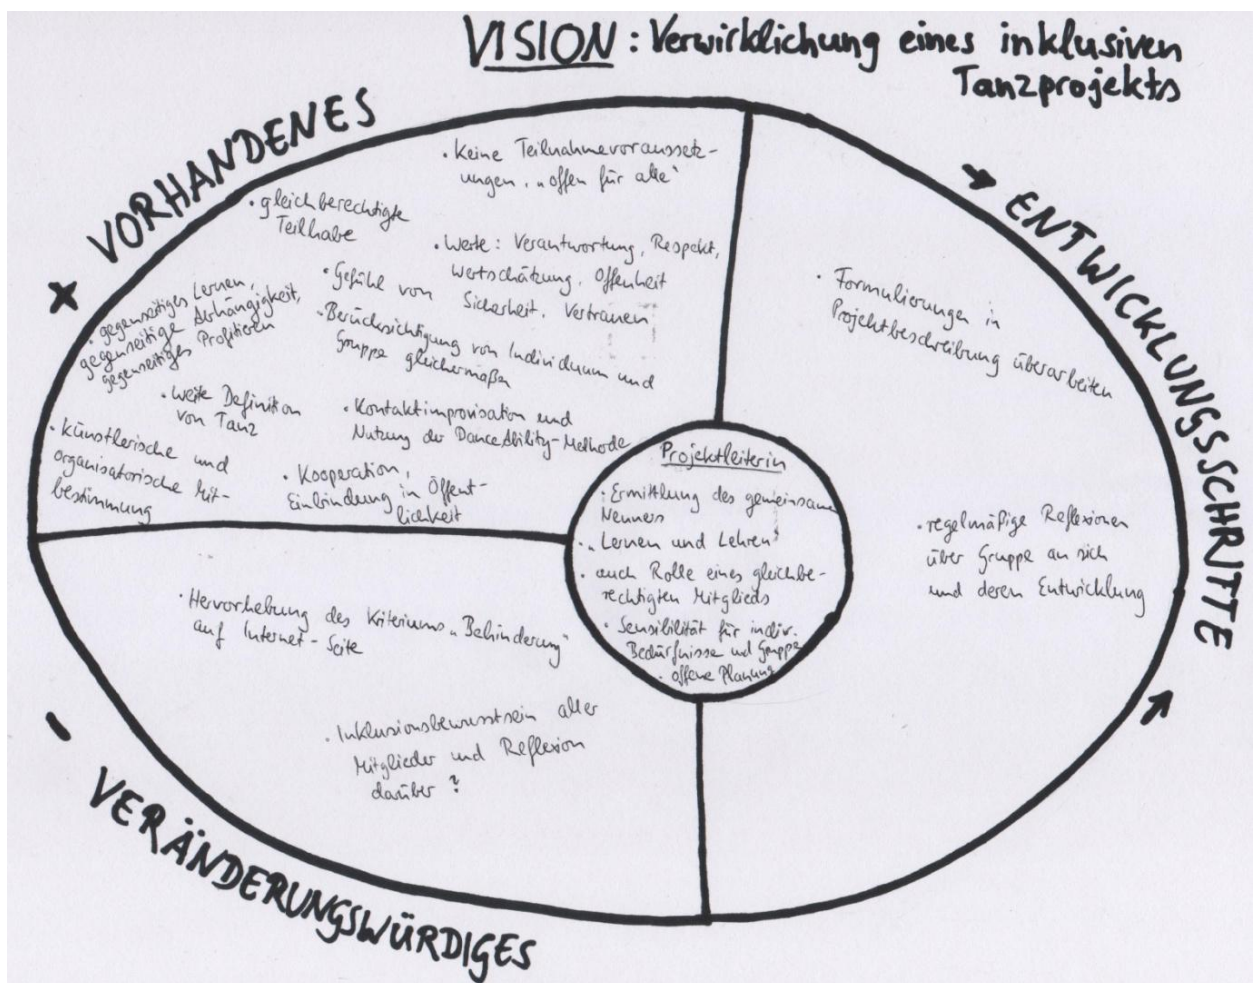 VISION : Verwirklichung eines inklusiven
Tanzprojekts
+ VORHANDENES
• Keine Teilnahmevoraussetz-
ungen, „offen für alle“
• gleichberechtigte
Teilhabe
• Werte: Verantwortung, Respekt,
Wertschätzung, Offenheit
• Gefühl von
Sicherheit, Vertrauen
• gegenseitiges Lernen,
gegenseitige Abhängigkeit,
gegenseitiges Profitieren
• Berücksichtigung von Individuum und
Gruppe gleichermaßen
• weite Definition
von Tanz
• Kontaktimprovisation und
Nutzung der DanceAbility-Methode
• künstlerische und
organisatorische Mit-
bestimmung
• Kooperation,
Einbindung in Öffent-
lichkeit
→ ENTWICKLUNGSSCHRITTE
• Formulierungen in
Projektbeschreibung überarbeiten
• regelmäßige Reflexionen
über Gruppe an sich
und deren Entwicklung
Projektleiterin
• Ermittlung des gemeinsamen
Nenners
• „Lernen und Lehren“
• auch Rolle eines gleichbe-
rechtigten Mitglieds
• Sensibilität für indiv.
Bedürfnisse und Gruppe
• offene Planung
- VERÄNDERUNGSWÜRDIGES
• Hervorhebung des Kriteriums „Behinderung“
auf Internet-Seite
• Inklusionsbewusstsein aller
Mitglieder und Reflexion
darüber?